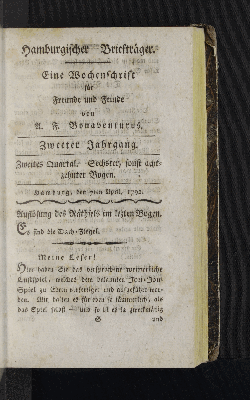 Hamburgischer Briefträger.
Eine Wochenschrift
für
Freunde und Feinde
von
A. F. Bonaventura.
Zweiter Jahrgang.
Zweites Quartal. Sechster, sonst acht-
zehnter Bogen.
Hamburg, den April, 1792.
Auflösung des Räthsels im lezten Bogen.
Es sind die Dach-Ziegel.
Meine Leser!
Hier haben Sie das versprochne weimerliche
Lustspiel, welches dem bekannten Jou-Jou-
Spiel zu Ehren verfertiget und aufgeführt wor-
den. Wir halten es für eben so läunerlich, als
das Spiel selbst — und so ist es ja zweckmäßig
G und